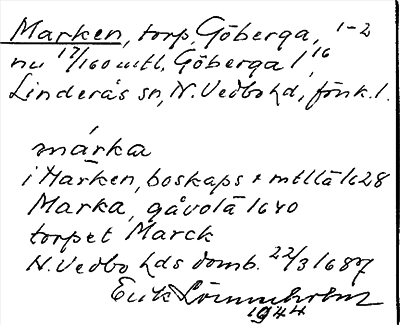 Marken, torp, Göberga, 1-2
nu 17/160 mtl, Göberga 1,16
Linderås sn, N. Vedbo hd, Jönk. l.
márka
i Marken, boskaps & mtllä 1628
Marka, gåvolä 1640
torpet Marck
N. Vedbo hds domb. 22/3 1687
Erik Lönnerholm
1944